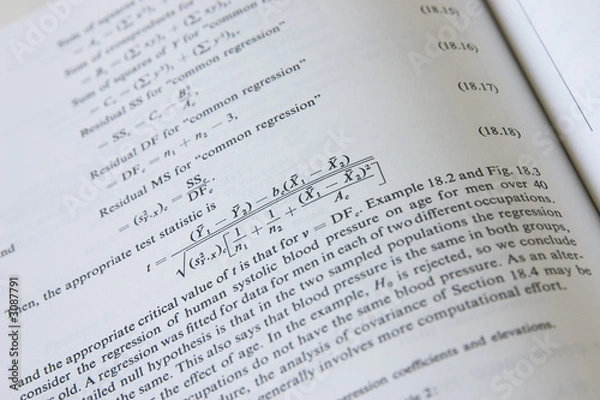 Sum of squares
(18.15)
Sum of crossproducts for "common
Sum of squares of y for "common regression"
(18.16)
Residual SS for "common regression"
(18.17)
Residual DF for "common regression"
= DF_c = n₁ + n₂ − 3,
(18.18)
Residual MS for "common regression"
= (s²_Y·X)_c = SS_c / DF_c.
en, the appropriate test statistic is
t = (Ȳ₁ − Ȳ₂) − b_c(X̄₁ − X̄₂) / √(s²_Y·X)_c [1/n₁ + 1/n₂ + (X̄₁ − X̄₂)² / A_c]
and the appropriate critical value of t is that for ν = DF_c. Example 18.2 and Fig. 18.3
consider the regression of human systolic blood pressure on age for men over 40
old. A regression was fitted for data for men in each of two different occupations.
tailed null hypothesis is that in the two sampled populations the regression
the same. This also says that blood pressure is the same in both groups,
the effect of age. In the example, H₀ is rejected, so we conclude
cupations do not have the same blood pressure. As an alter-
dure, the analysis of covariance of Section 18.4 may be
generally involves more computational effort.
regression coefficients and elevations.
ple 2:
Adobe Stock | #3087791